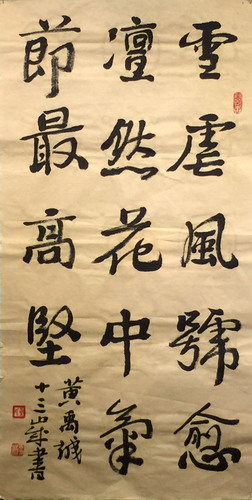 雪虐風號愈
凜然花中氣
節最高堅
黄禹诚
十三岁書